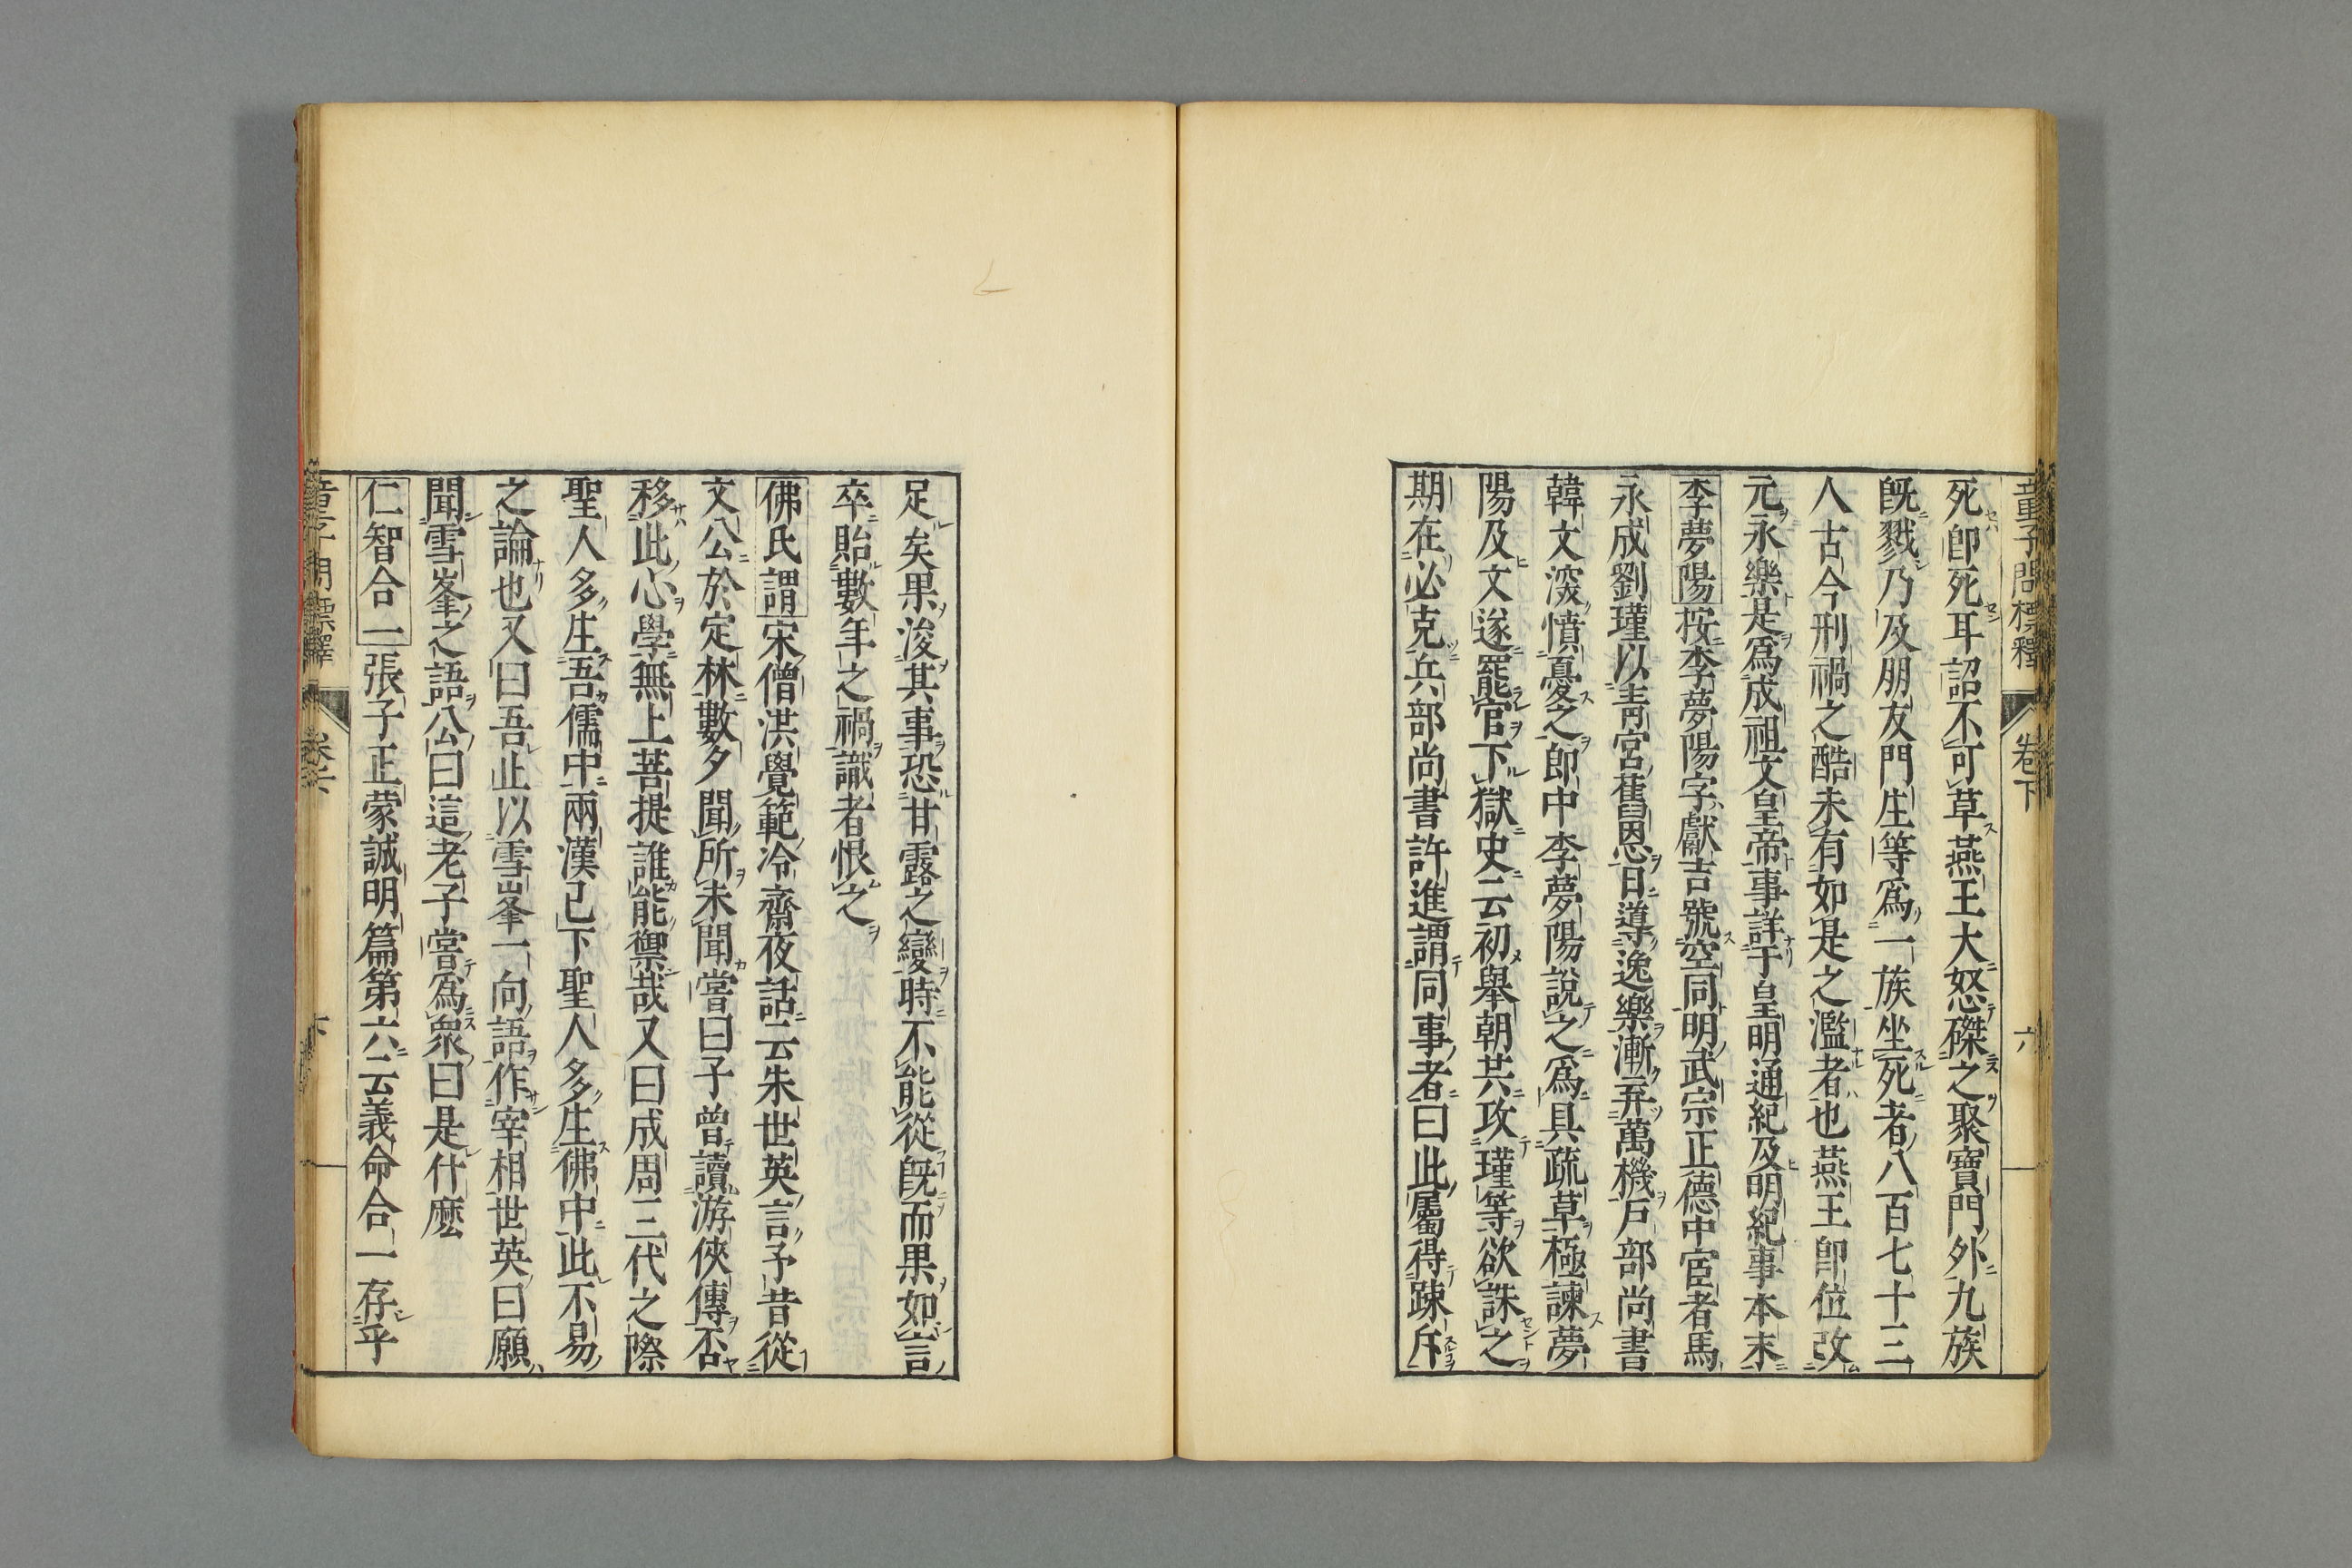 童子問標釋 卷下 六
死即死耳詔不可草燕王大怒磔之聚寶門外九族
既戮乃及朋友門生等爲一族坐死者八百七十三
人古今刑禍之酷未有如是之濫者也燕王即位改
元永樂是爲成祖文皇帝事詳于皇明通紀及明紀事本末
李夢陽按李夢陽字獻吉號空同明武宗正德中宦者馬
永成劉瑾以青宮舊恩日導逸樂漸弃萬機戸部尚書
韓文深憤憂之郎中李夢陽說之爲具疏草極諫夢
陽及文遂罷官下獄史云初舉朝共攻瑾等欲誅之
期在必克兵部尚書許進謂同事者曰此屬得踈斥
足矣果浚其事恐甘露之變時不能從既而果如言
卒貽數年之禍識者恨之
佛氏謂宋僧洪覺範冷齋夜話云朱世英言予昔從
文公於定林數夕聞所未聞嘗曰子曾讀游俠傳否
移此心學無上菩提誰能禦哉又曰成周三代之際
聖人多生吾儒中兩漢已下聖人多生佛中此不易
之論也又曰吾止以雪峯一向語作宰相世英曰願
聞雪峯之語公曰這老子嘗爲衆曰是什麼
仁智合一張子正蒙誠明篇第六云義命合一存乎